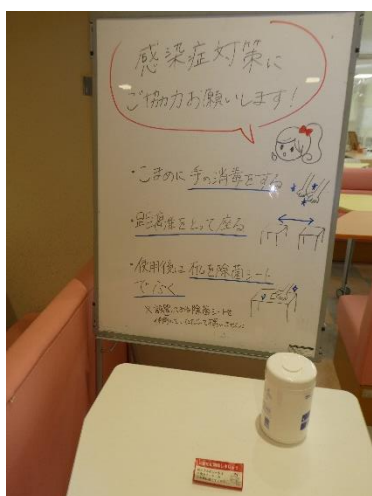 感染症対策に
ご協力お願いします!
・こまめに手の消毒をする
・距離をとって座る
・使用後は机を除菌シート
でふく
※設置してある除菌シートを